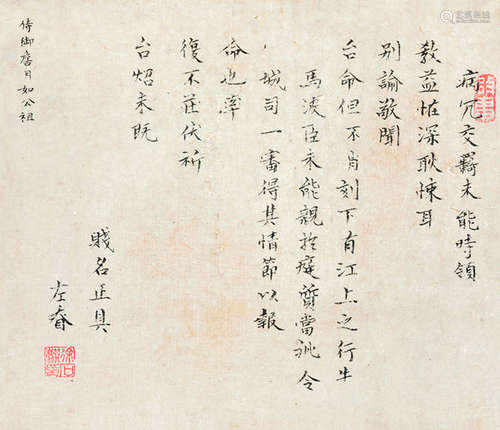 病冗交羁未能時領
教益悵深耿悚耳
别論敬聞
台命但不肖刻下有江上之行牛
馬波臣未能親於庭質當祇令
城司一審得其情節以報
命也率
復不莊伏祈
台炤未既
賤名正具
左眷
侍御舊日如公祖